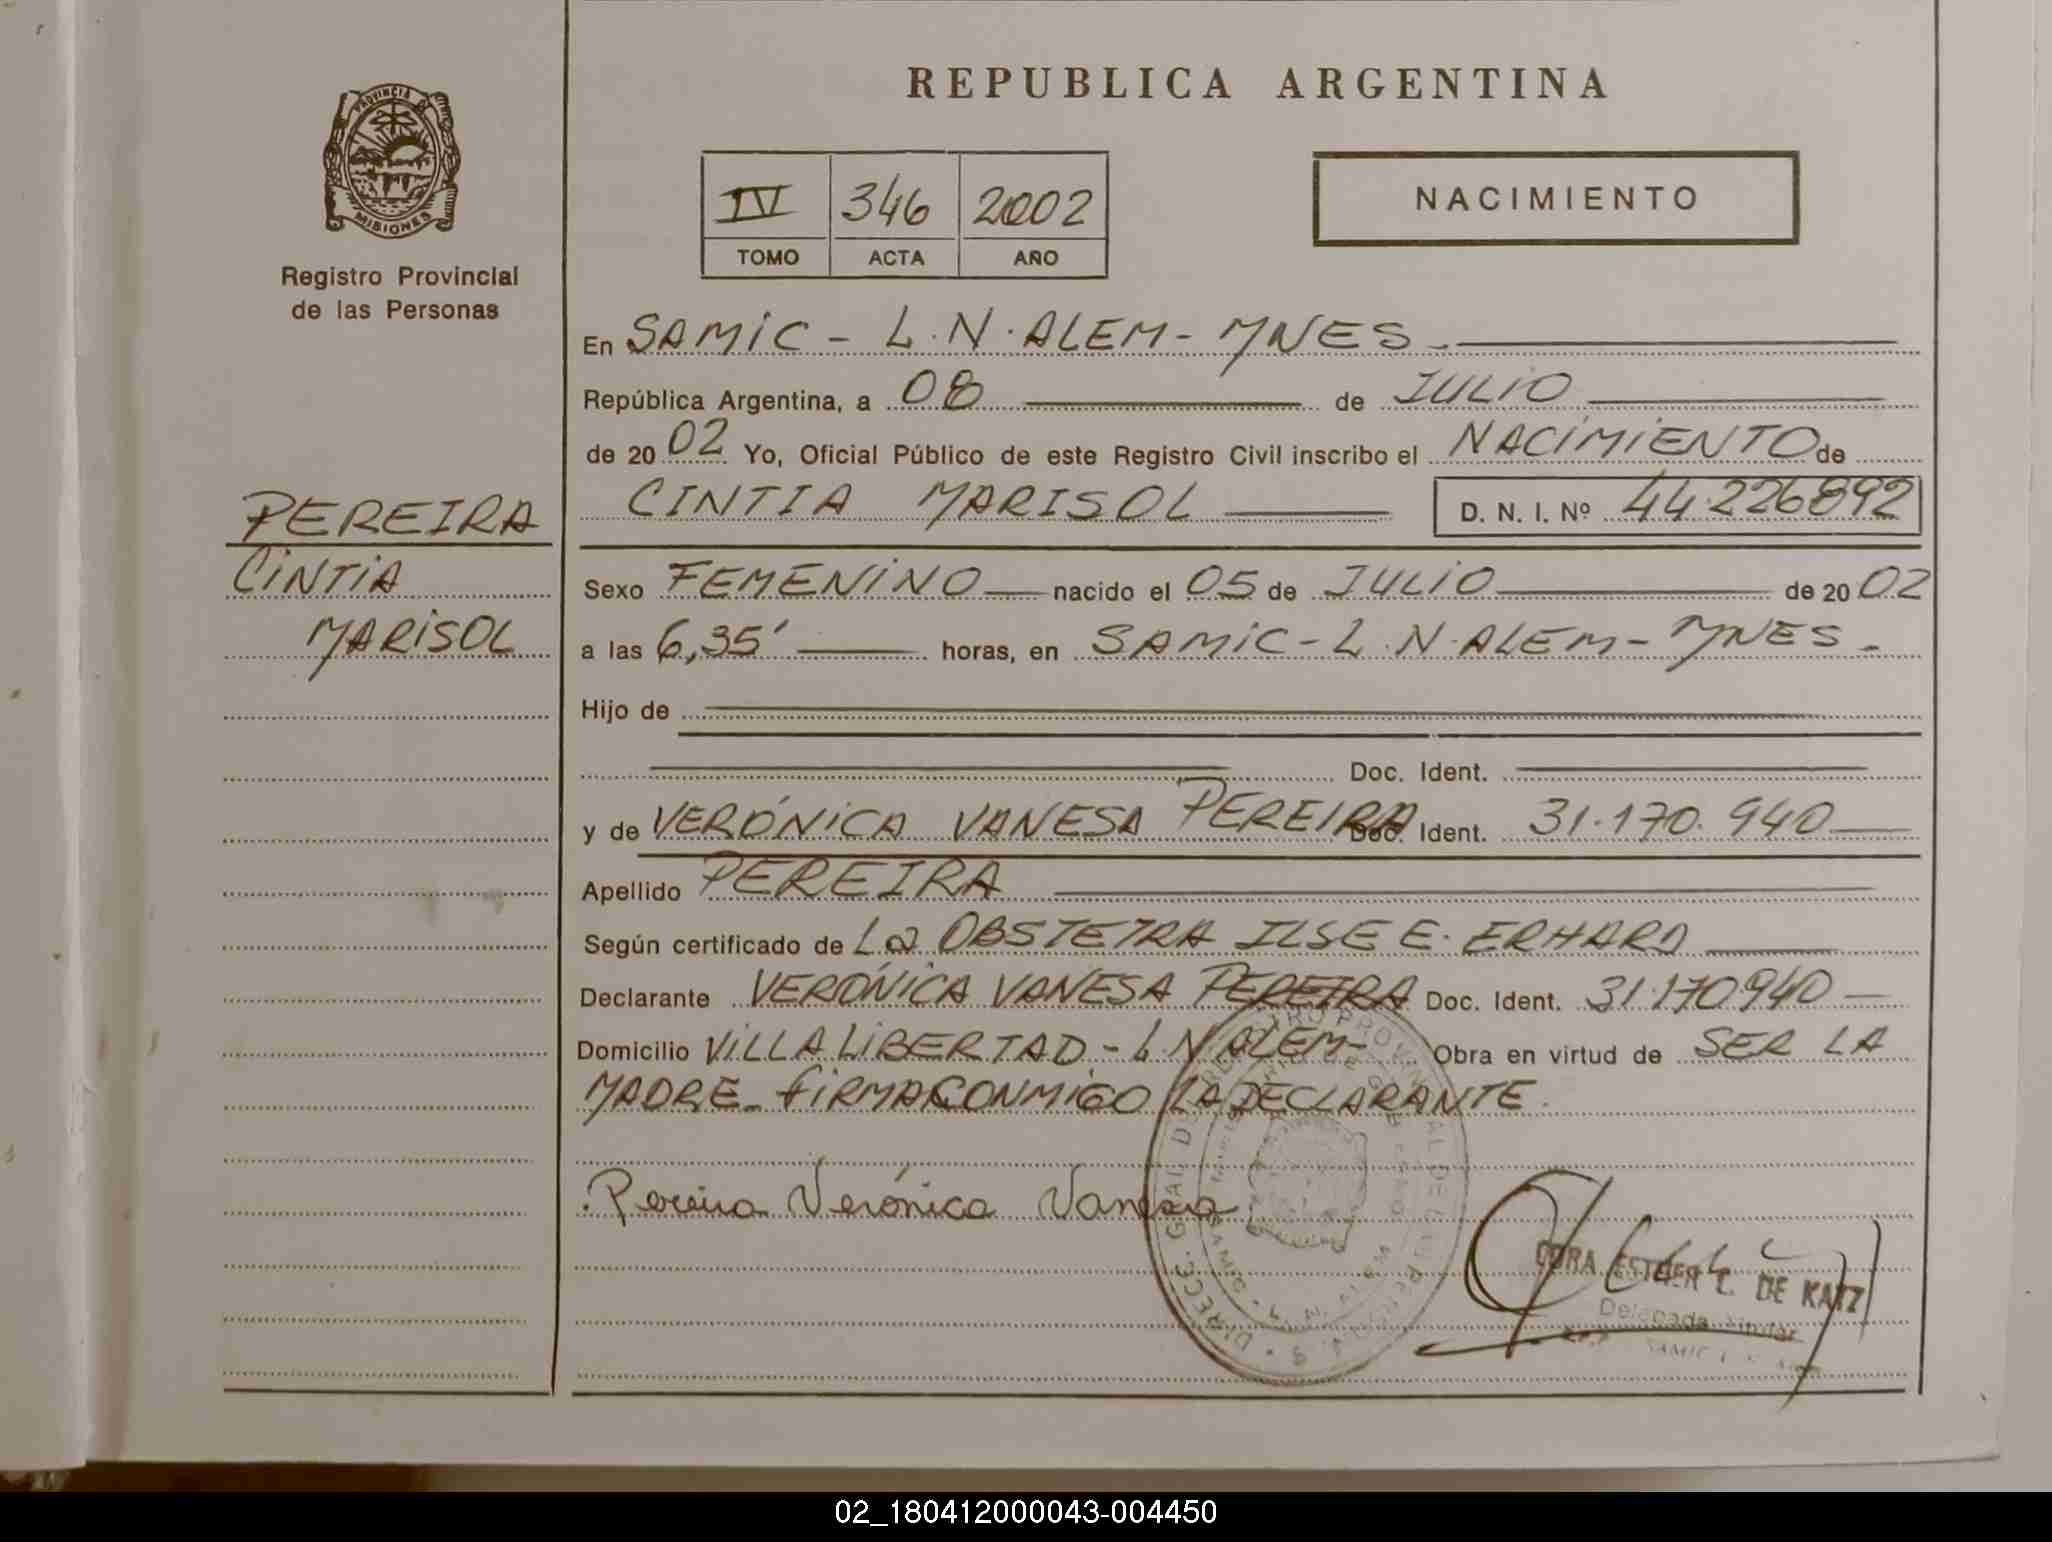 REPUBLICA ARGENTINA
PROVINCIA D
MISIONES
Registro Provincial
de las Personas
IV 346 2002
TOMO ACTA AÑO
NACIMIENTO
En SAMIC - L.N. ALEM - MNES.
República Argentina, a 08 de JULIO
de 2002 Yo, Oficial Público de este Registro Civil inscribo el NACIMIENTO de
CINTIA MARISOL D. N. I. Nº 44.226892
PEREIRA
CINTIA
MARISOL
Sexo FEMENINO nacido el 05 de JULIO de 2002
a las 6,35' horas, en SAMIC - L.N. ALEM - MNES.
Hijo de
Doc. Ident.
y de VERÓNICA VANESA PEREIRA Doc. Ident. 31.170.940
Apellido PEREIRA
Según certificado de La OBSTETRA ILSE E. ERHARD
Declarante VERÓNICA VANESA PEREIRA Doc. Ident. 31.170940
Domicilio VILLA LIBERTAD - L.N ALEM- Obra en virtud de SER LA
MADRE. FIRMA CONMIGO LA DECLARANTE.
Pereira Verónica Vanesa
CORA ESTHER L. DE KATZ
Delegada Titular
SAMIC L. N. Alem
02_180412000043-004450